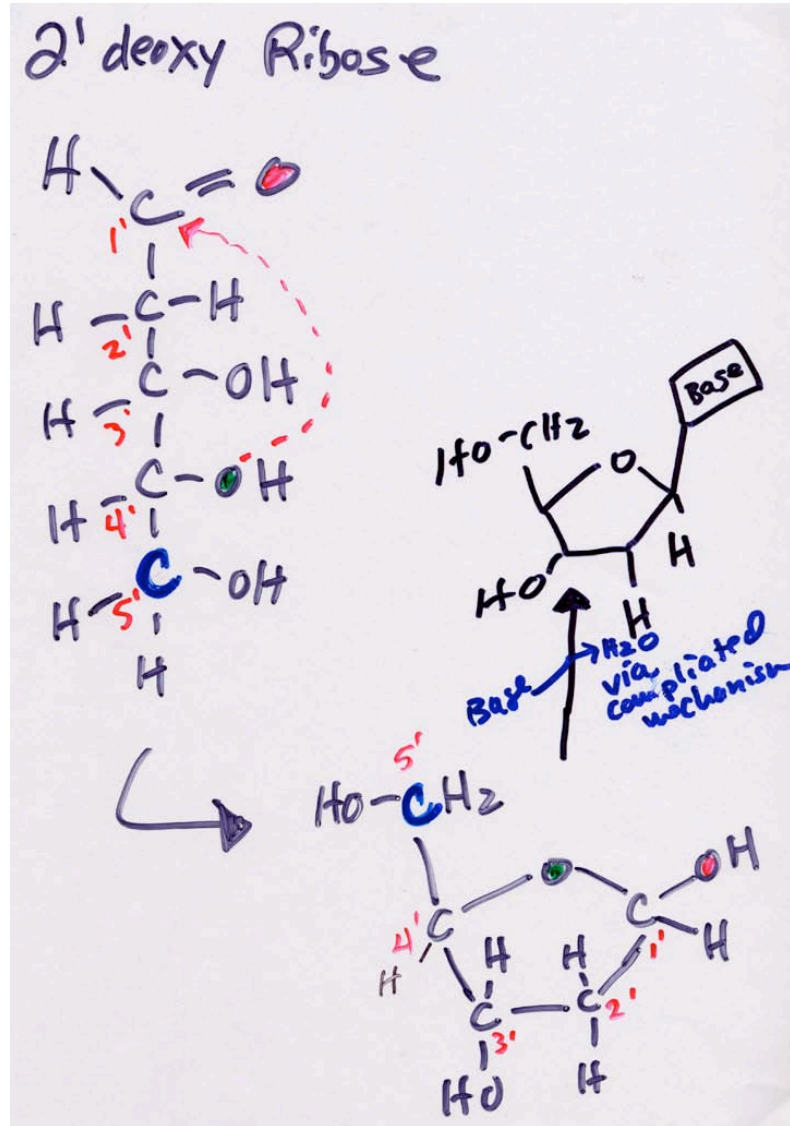 2' deoxy Ribose
H C = O
1'
H - C - H
2'
C - OH
H 3'
C - OH
H 4'
C - OH
H 5'
H
Base
HO - CH2
O
H
HO
H
Base → H2O
via
compliated
mechanism
5'
HO - CH2
O
OH
C
4' C
H
1'
H
H
H
C
C 2'
3'
HO
H